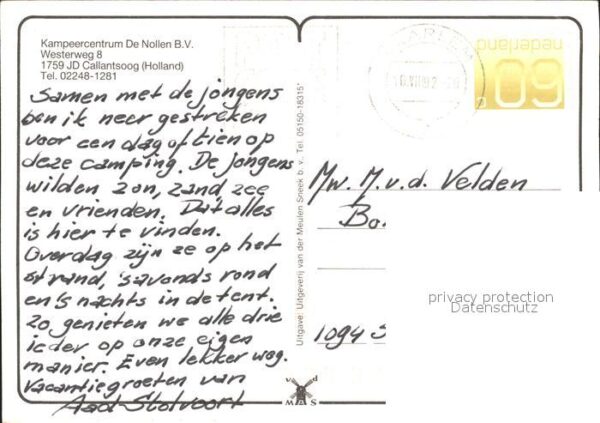 Kampeercentrum De Nollen B.V.
Westerweg 8
1759 JD Callantsoog (Holland)
Tel. 02248-1281
Samen met de jongens
ben ik neer gestreken
voor een dag of tien op
deze camping. De jongens
wilden zon, zand, zee
en vrienden. Dat alles
is hier te vinden.
Overdag zijn ze op het
strand, 's avonds rond
en 's nachts in de tent.
Zo genieten we alle drie
ieder op onze eigen
manier. Even lekker weg.
Vacantiegroeten van
Aad Stolvoort
Uitgave: Uitgeverij van der Meulen Sneek b.v. Tel. 05150-18315*
v d
MAS
HAARLEM
nederland
60c
Mw. M.v.d. Velden
Bo
1094 S
privacy protection
Datenschutz